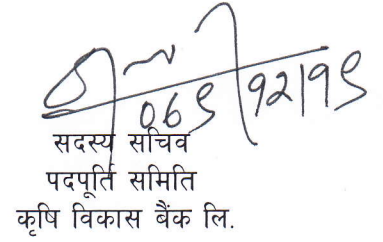 ०६९/१२/१९
सदस्य सचिव
पदपूर्ति समिति
कृषि विकास बैंक लि.